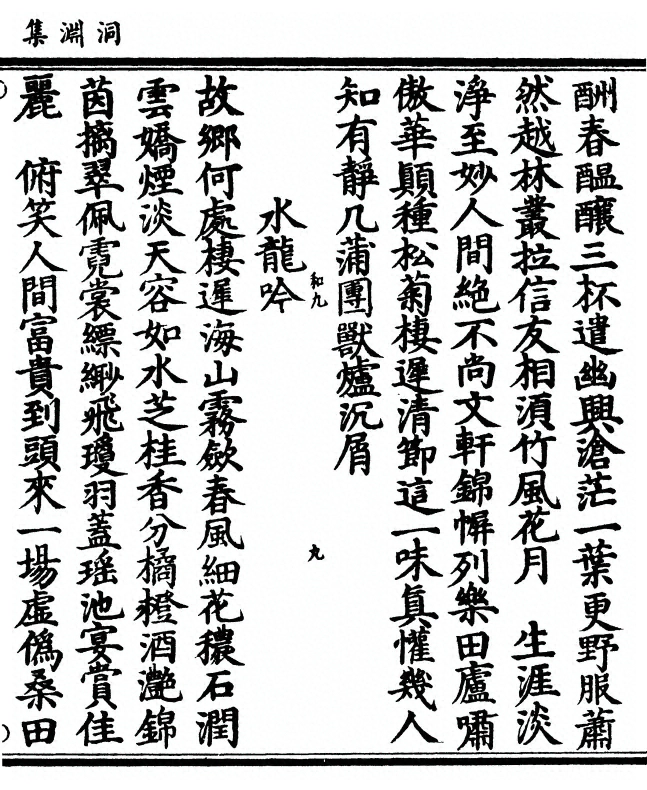 洞淵集
酬春醞釀三杯遣幽興滄茫一葉更野服蕭
然越林叢拉信友相須竹風花月　生涯淡
淨至妙人間絶不尚文軒錦幈列樂田廬嘯
傲華顛種松菊棲遲清節這一味真懽幾人
知有靜几蒲團獸爐沉屑
水龍吟
和九
九
故鄉何處棲遲海山霧斂春風細花穠石潤
雲嬌煙淡天容如水芝桂香分橘橙酒灔錦
茵摛翠佩霓裳縹緲飛瓊羽蓋瑶池宴賞佳
麗　俯笑人間富貴到頭來一場虛僞桑田